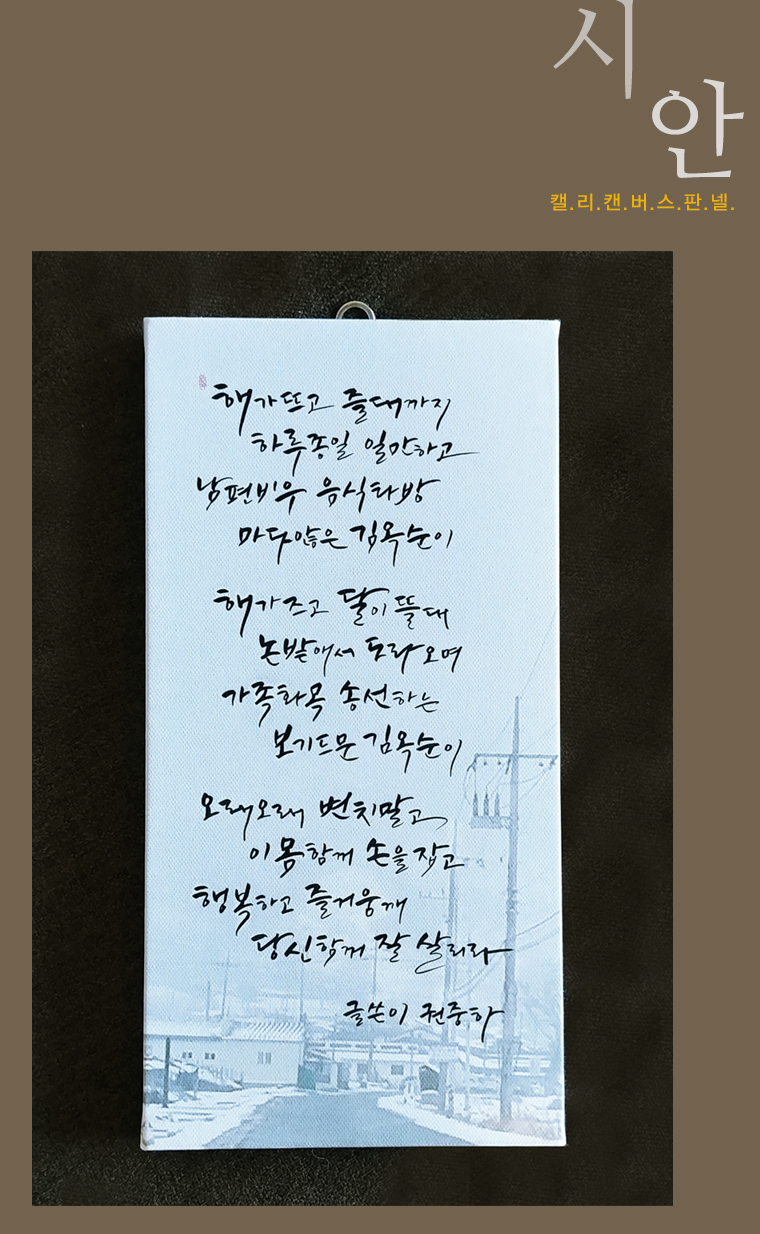 시안
캘.리.캔.버.스.판.넬.
해가뜨고 즐대까지
하루종일 일만하고
남편비우 음식타방
마다않은 김옥순이
해가즈고 달이 뜰대
논밭애서 도라오며
가족화목 송선하는
보기드문 김옥순이
오래오래 변치말고
이몸함께 손을잡고
행복하고 즐거웁깨
당신함께 잘 살리라
글쓴이 권중하